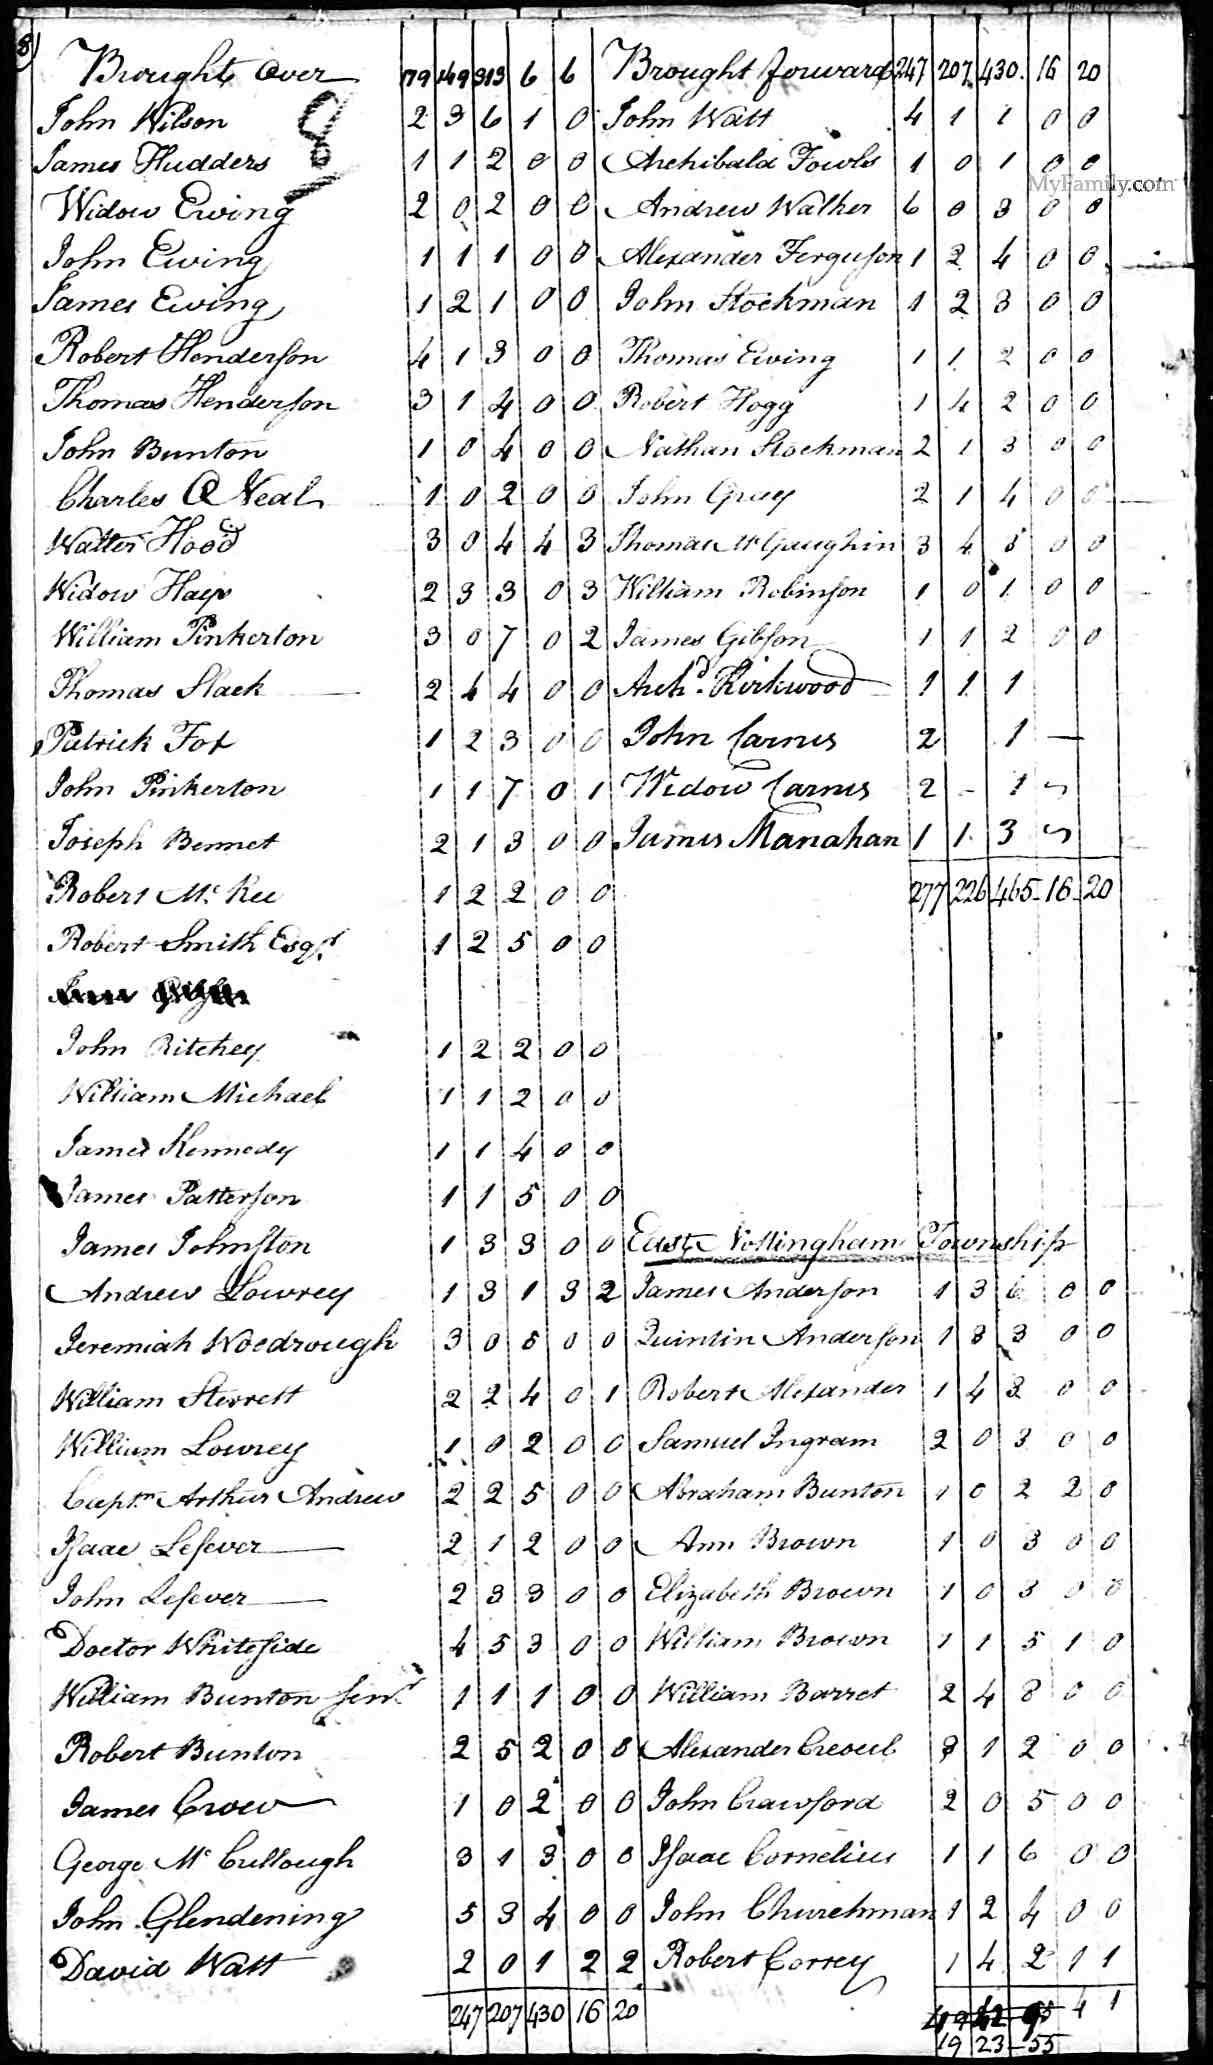 8)
Brought over 179 149 313 6 6
John Wilson 2 3 6 1 0
8
James Hudders 1 1 2 0 0
Widow Ewing 2 0 2 0 0
John Ewing 1 1 1 0 0
James Ewing 1 2 1 0 0
Robert Henderson 4 1 3 0 0
Thomas Henderson 3 1 4 0 0
John Bunton 1 0 4 0 0
Charles O Neal 1 0 2 0 0
Walter Hood 3 0 4 4 3
Widow Hays 2 3 3 0 3
William Pinkerton 3 0 7 0 2
Thomas Slack 2 4 4 0 0
Patrick Fox 1 2 3 0 0
John Pinkerton 1 1 7 0 1
Joseph Bennet 2 1 3 0 0
Robert Mc Kee 1 2 2 0 0
Robert Smith Esqr. 1 2 5 0 0
John Ritchey 1 2 2 0 0
William Michael 1 1 2 0 0
James Kennedy 1 1 4 0 0
James Patterson 1 1 5 0 0
James Johnston 1 3 3 0 0
Andrew Lowrey 1 3 1 3 2
Jeremiah Woodrough 3 0 5 0 0
William Sterrett 2 2 4 0 1
William Lowrey 1 0 2 0 0
Captn. Arthur Andrew 2 2 5 0 0
Isaac Lefever 2 1 2 0 0
John Lefever 2 3 3 0 0
Doctor Whiteside 4 5 3 0 0
William Bunton Senr. 1 1 1 0 0
Robert Bunton 2 5 2 0 0
James Crow 1 0 2 0 0
George Mc Cullough 3 1 3 0 0
John Glendening 5 3 4 0 0
David Watt 2 0 1 2 2
247 207 430 16 20
Brought forward 247 207 430 16 20
John Watt 4 1 1 0 0
Archibald Fowls 1 0 1 0 0
MyFamily.com
Andrew Walker 6 0 3 0 0
Alexander Ferguson 1 2 4 0 0
John Stockman 1 2 3 0 0
Thomas Ewing 1 1 2 0 0
Robert Hogg 1 4 2 0 0
Nathan Stockman 2 1 3 0 0
John Gray 2 1 4 0 0
Thomas McGaughin 3 4 5 0 0
William Robinson 1 0 1 0 0
James Gibson 1 1 2 0 0
Archd. Kirkwood 1 1 1
John Carnes 2 1 —
Widow Carnes 2 - 1
James Manahan 1 1 3
277 226 465 16 20
East Nottingham Township
James Anderson 1 3 6 0 0
Quintin Anderson 1 3 3 0 0
Robert Alexander 1 4 2 0 0
Samuel Ingram 2 0 3 0 0
Abraham Bunton 1 0 2 2 0
Ann Brown 1 0 3 0 0
Elizabeth Brown 1 0 3 0 0
William Brown 1 1 5 1 0
William Barret 2 4 8 0 0
Alexander 3 1 2 0 0
John Crawford 2 0 5 0 0
Isaac Cornelius 1 1 6 0 0
John Churchman 1 2 4 0 0
Robert Correy 1 4 2 1 1
4 1
19 23 55